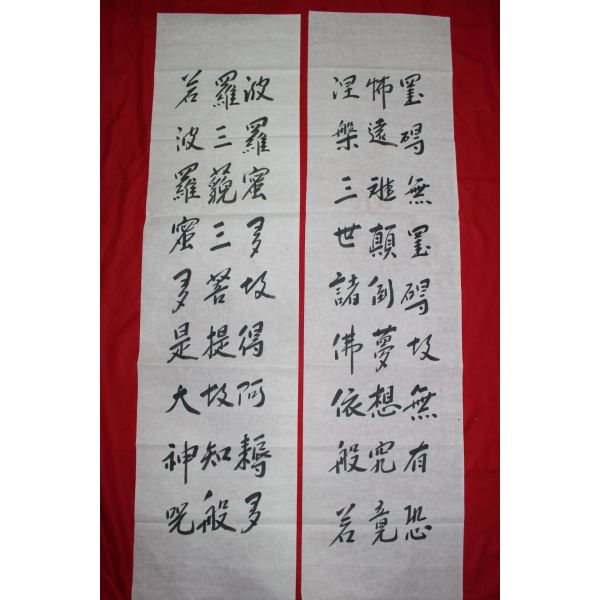 罣碍無罣碍故無有恐
怖遠離顛倒夢想究竟
涅槃三世諸佛依般若
波羅蜜多故得阿耨多
羅三藐三菩提故知般
若波羅蜜多是大神呪